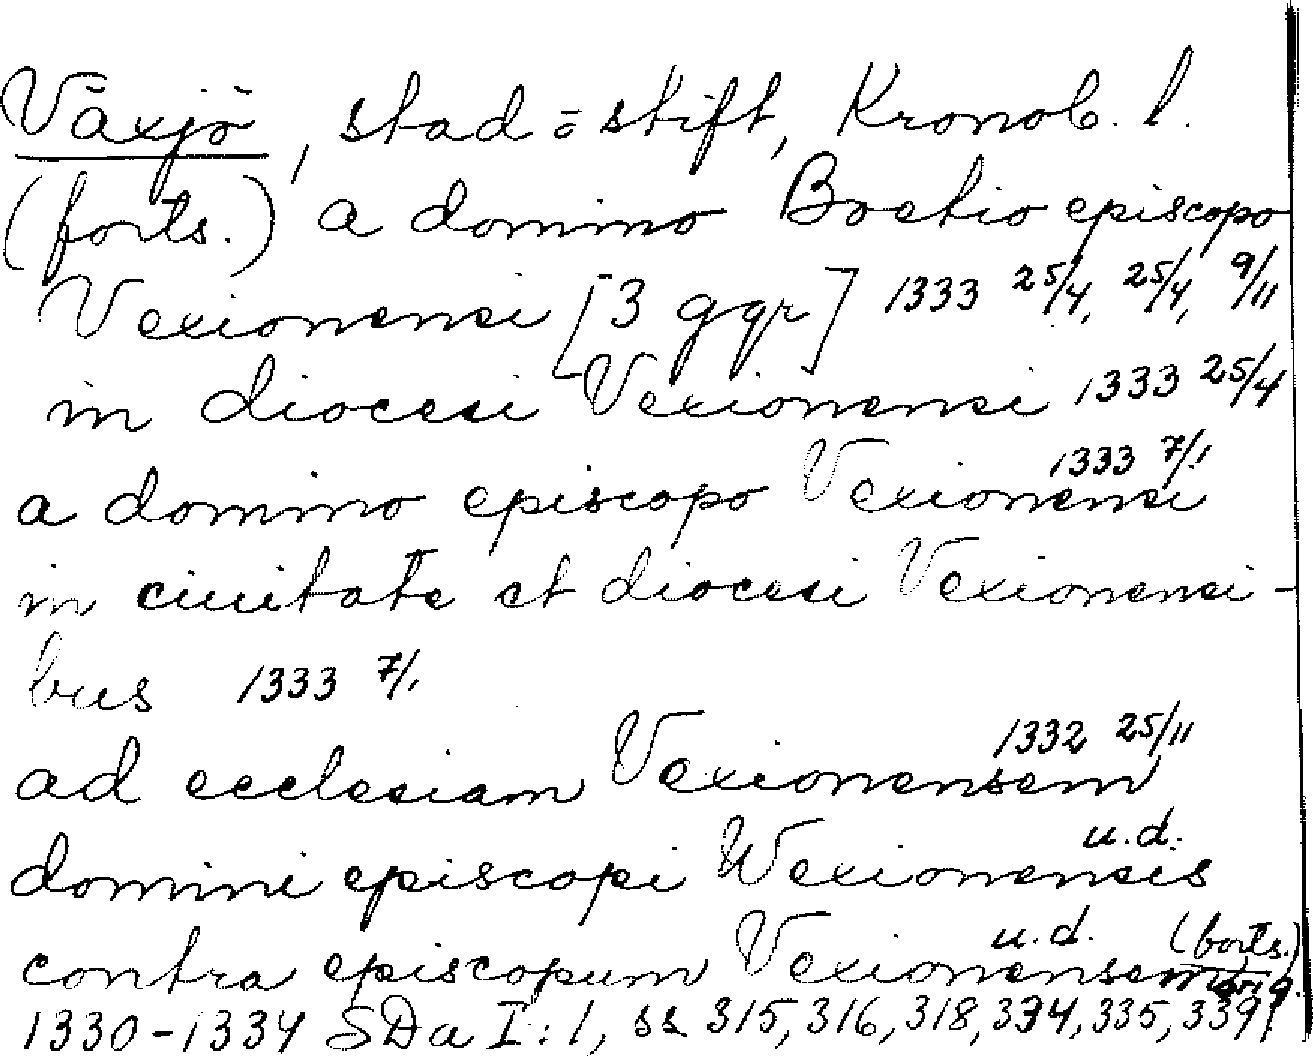 Växjö, stad o stift, Kronob. l.
(forts.) a domino Boetio episcopo
Vexionensi [3 ggr] 1333 25/4, 25/4, 9/11
in diocesi Vexionensi 1333 25/4
a domino episcopo Vexionensi 1333 7/1
in ciuitate et diocesi Vexionensi-
bus 1333 7/1
ad ecclesiam Vexionensem 1332 25/11
domini episcopi Wexionensis u.d.
contra episcopum Vexionensem u.d. (forts.)
1330-1334 SDa I:1, ss 315, 316, 318, 334, 335, 339